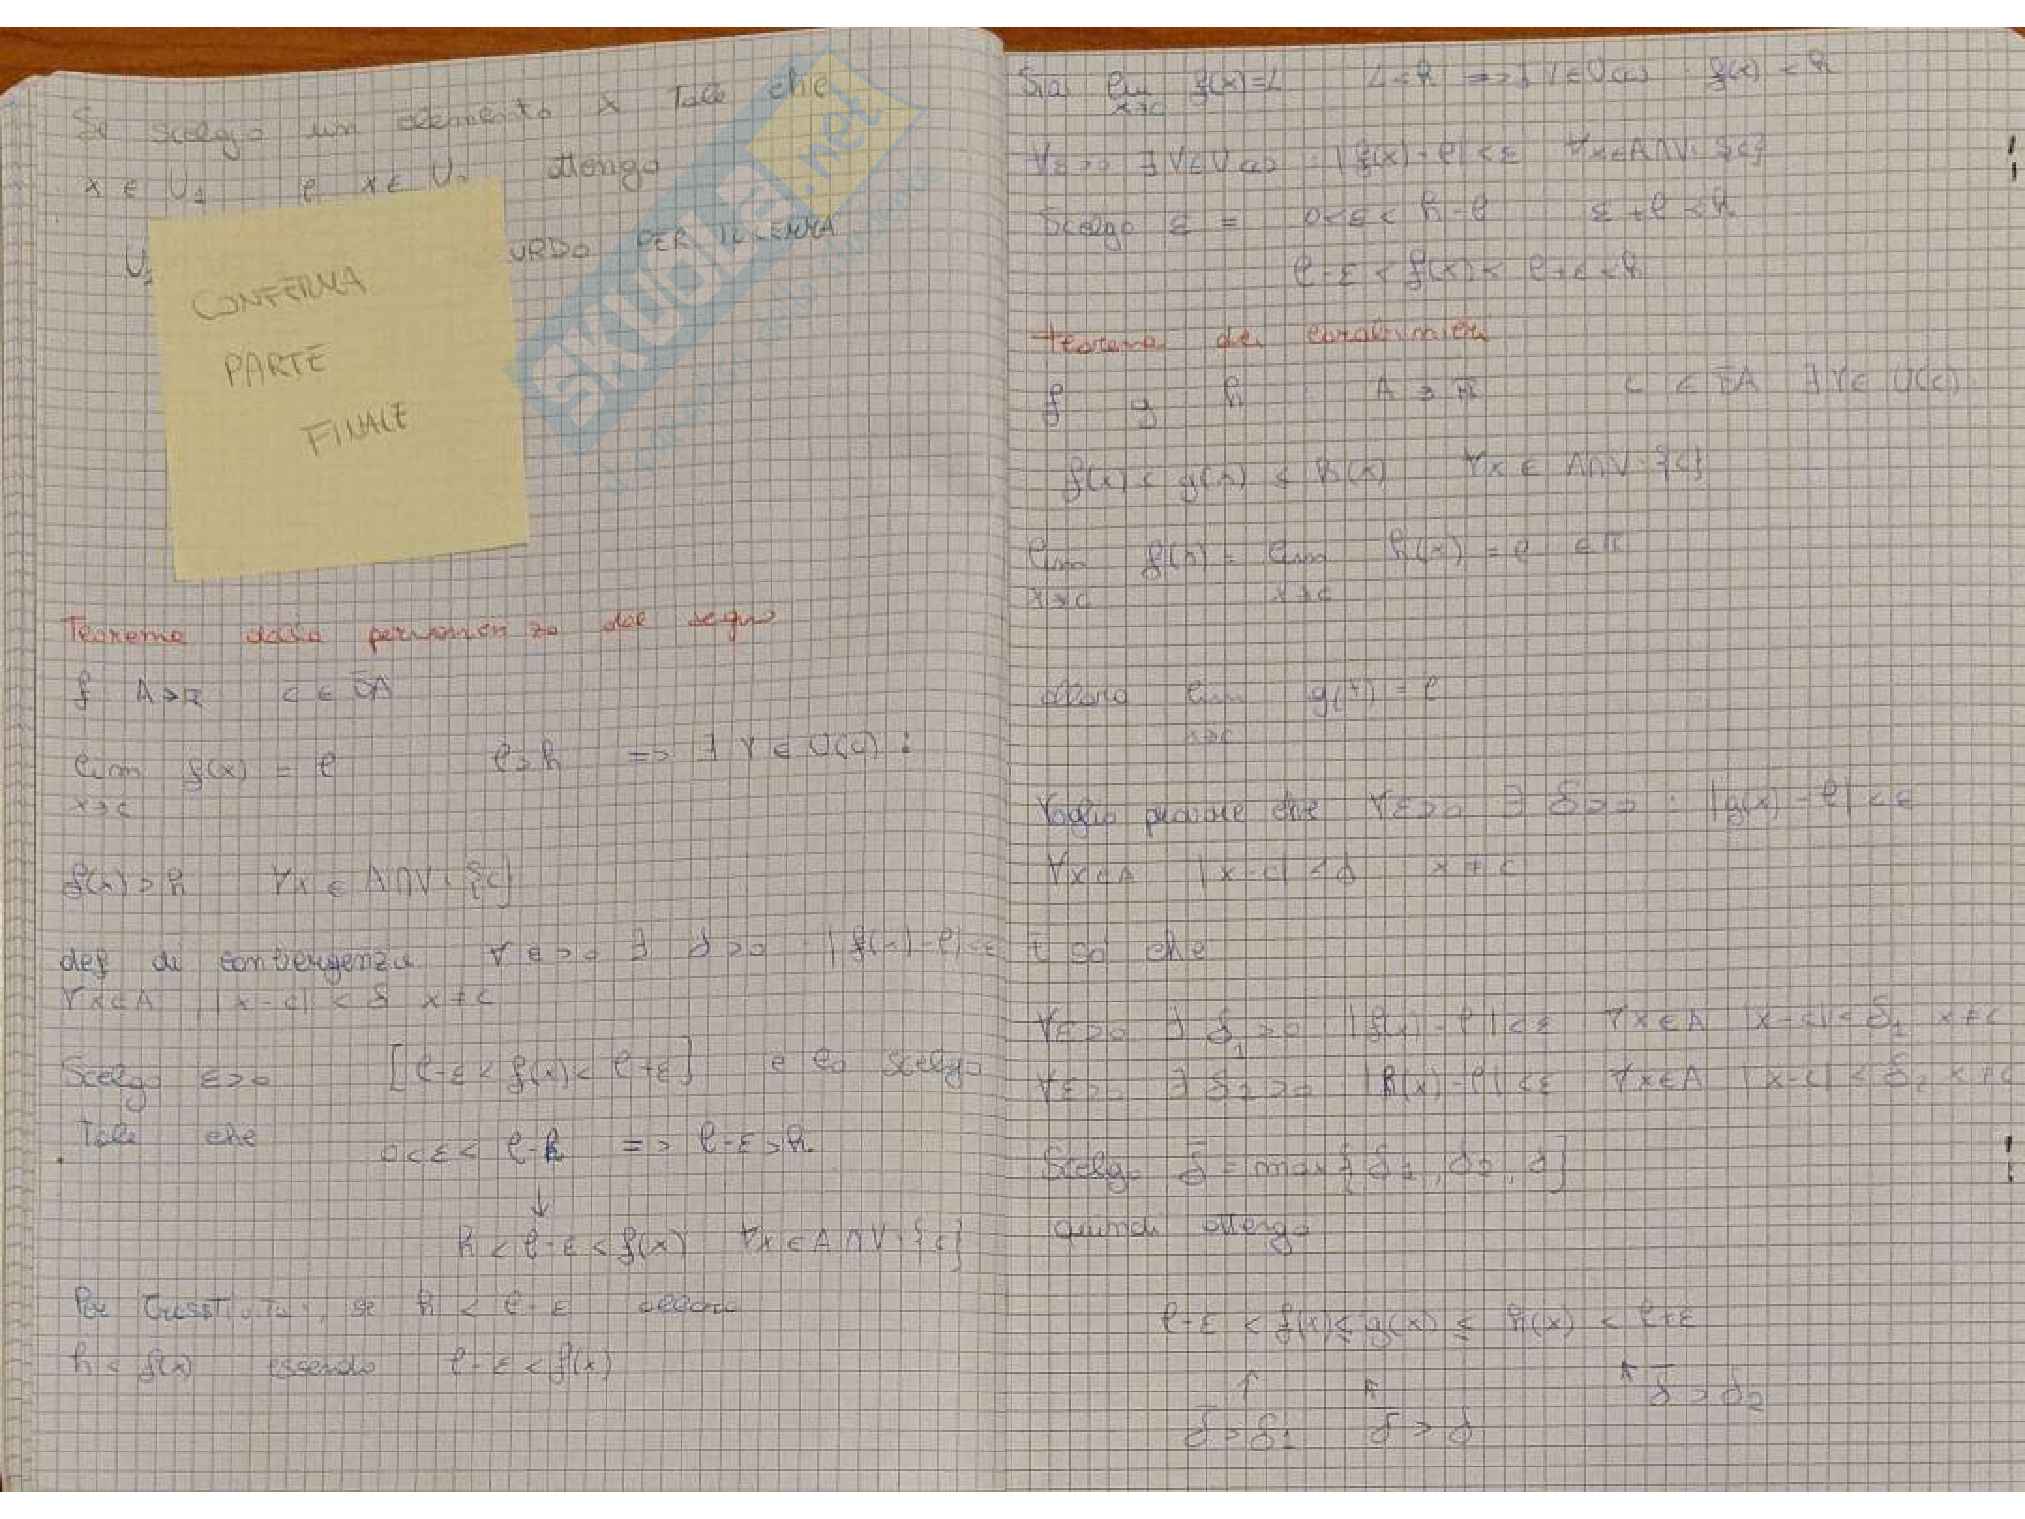 Se scelgo un elemento x Tale che
x ∈ U₁ e x ∈ U₂ ottengo
U₁ URDO PER IL LEMMA
CONFERMA
PARTE
FINALE
SKUOLA.net
Teorema della permanenza del segno
f A→R c ∈ DA
lim f(x) = l l>h => ∃ V ∈ U(c) :
x→c
f(x) > h ∀x ∈ A∩V\{c}
def di convergenza ∀ε>0 ∃ δ>0 : |f(x)-l|<ε
∀x∈A |x-c| < δ x≠c
Scelgo ε>0 [l-ε < f(x) < l+ε] e lo scelgo
Tale che 0<ε< l-h => l-ε>h
↓
h < l-ε < f(x) ∀x ∈ A∩V\{c}
Per Transitività, se h < l-ε allora
h < f(x) essendo l-ε < f(x)
Sia lim f(x)=L L<h => ∃ V∈U(c) : f(x) < h
x→c
∀ε>0 ∃ V∈U(c) : |f(x)-l|<ε ∀x∈A∩V\{c}
Scelgo ε = 0<ε< h-l ε+l<h
l-ε < f(x) < l+ε < h
teorema dei carabinieri
f g h : A→R c ∈ DA ∃ V∈ U(c)
f(x) ≤ g(x) ≤ h(x) ∀x ∈ A∩V\{c}
lim f(x) = lim h(x) = l ∈ R
x→c x→c
allora lim g(x) = l
x→c
Voglio provare che ∀ε>0 ∃ δ>0 : |g(x)-l|<ε
∀x∈A |x-c|<δ x≠c
E so che
∀ε>0 ∃ δ₁>0 |f(x)-l|<ε ∀x∈A |x-c|<δ₁ x≠c
∀ε>0 ∃ δ₂>0 |h(x)-l|<ε ∀x∈A |x-c|<δ₂ x≠c
Scelgo δ̄ = max{δ₁, δ₂, δ}
quindi ottengo
l-ε < f(x) ≤ g(x) ≤ h(x) < l+ε
↑ ↑ ↑ δ̄ > δ₂
δ̄ > δ₁ δ̄ > δ